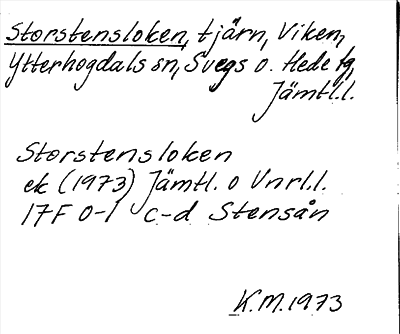 Storstensloken, tjärn, Viken,
Ytterhogdals sn, Svegs o. Hede tg,
Jämtl.l.
Storstensloken
ek (1973) Jämtl. o Vnrl.l.
17F 0-1 c-d Stensån
K.M. 1973